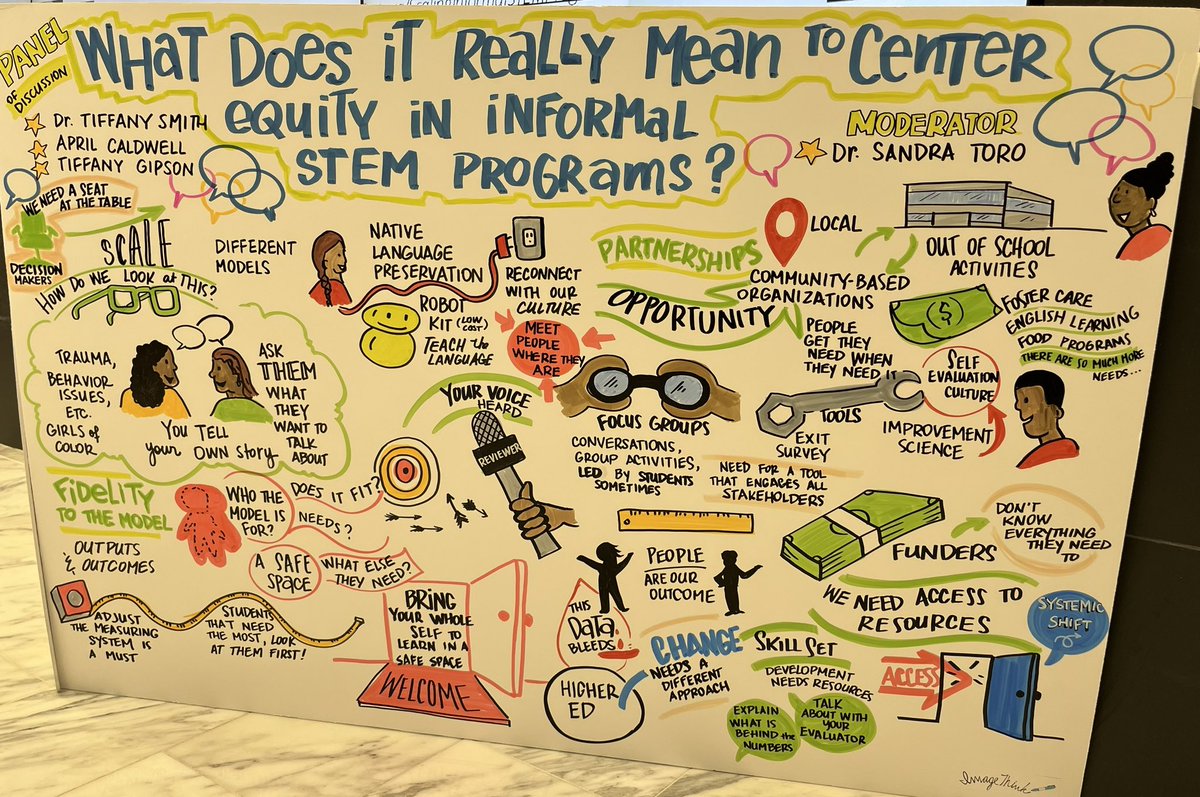 PANEL
OF DISCUSSION
Dr. TIFFANY SMITH
APRIL CALDWELL
TIFFANY GIPSON
WHAT DOES iT REALLY MEAN TO CENTER
EQUITY IN INFORMAL
STEM PROGRAMS?
MODERATOR
Dr. SANDRA TORO
WE NEED A SEAT
AT THE TABLE
DECISION
MAKERS
SCALE
HOW DO WE LOOK AT THIS?
TRAUMA,
BEHAVIOR
ISSUES,
ETC.
GIRLS OF
COLOR
YOU TELL
your OWN STORY
ASK
THEM
WHAT
THEY
WANT TO
TALK
ABOUT
DIFFERENT
MODELS
NATIVE
LANGUAGE
PRESERVATION
RECONNECT
WITH OUR
CULTURE
ROBOT
KIT (LOW COST)
TEACH the
LANGUAGE
MEET
PEOPLE
WHERE THEY
ARE
PARTNERSHIPS
LOCAL
COMMUNITY-BASED
ORGANIZATIONS
OUT OF SCHOOL
ACTIVITIES
OPPORTUNITY
PEOPLE
GET THEY
NEED WHEN
THEY NEED IT
FOSTER CARE
ENGLISH LEARNING
FOOD PROGRAMS
THERE ARE SO MUCH MORE
NEEDS...
YOUR VOICE
HEARD
REVIEWER
FOCUS GROUPS
CONVERSATIONS,
GROUP ACTIVITIES,
LED BY STUDENTS
SOMETIMES
TOOLS
EXIT
SURVEY
NEED FOR A TOOL
THAT ENGAGES ALL
STAKEHOLDERS
SELF
EVALUATION
CULTURE
IMPROVEMENT
SCIENCE
FIDELITY
TO THE MODEL
OUTPUTS
& OUTCOMES
WHO THE
MODEL IS
FOR?
DOES IT FIT?
NEEDS?
A SAFE
SPACE
WHAT ELSE
THEY NEED?
ADJUST
THE MEASURING
SYSTEM IS
A MUST
STUDENTS
THAT NEED
THE MOST, LOOK
AT THEM FIRST!
BRING
YOUR WHOLE
SELF TO
LEARN IN A
SAFE SPACE
WELCOME
PEOPLE
ARE OUR
OUTCOME
THIS
DATA
BLEEDS
HIGHER
ED
CHANGE
NEEDS A
DIFFERENT
APPROACH
FUNDERS
DON'T
KNOW
EVERYTHING
THEY NEED
TO
WE NEED ACCESS TO
RESOURCES
SYSTEMIC
SHIFT
SKILL SET
DEVELOPMENT
NEEDS RESOURCES
EXPLAIN
WHAT IS
BEHIND the
NUMBERS
TALK
ABOUT WITH
YOUR
EVALUATOR
ACCESS
ImageThink